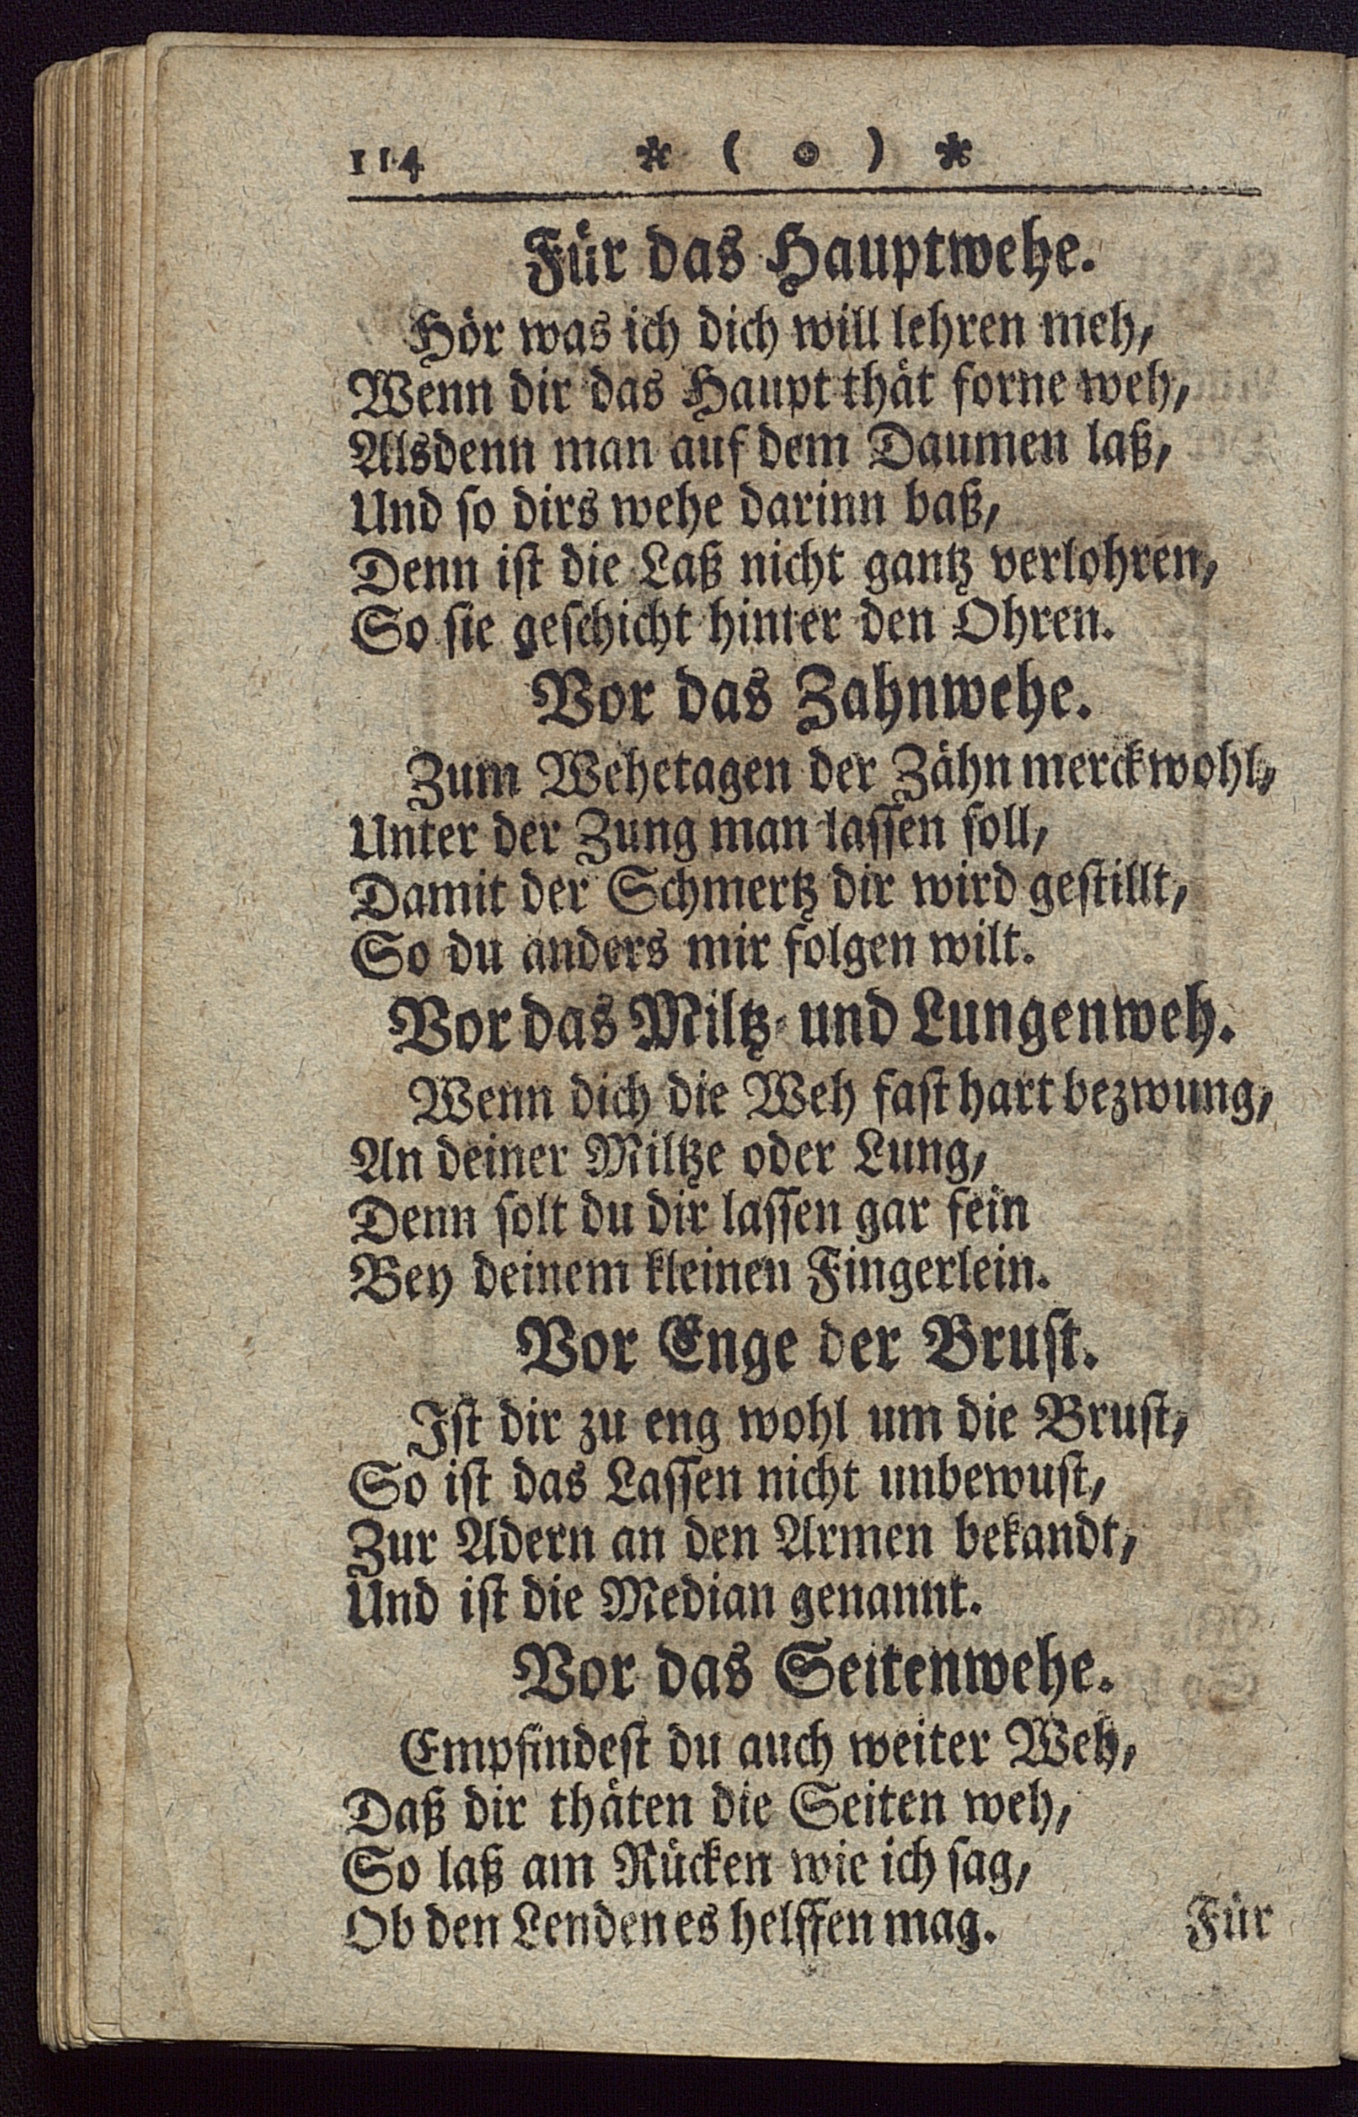 114 * ( o ) *
Für das Hauptwehe.
Hör was ich dich will lehren meh,
Wenn dir das Haupt thät forne weh,
Alsdenn man auf dem Daumen laß,
Und so dirs wehe darinn baß,
Denn ist die Laß nicht gantz verlohren,
So sie geschicht hinter den Ohren.
Vor das Zahnwehe.
Zum Wehetagen der Zähn merck wohl,
Unter der Zung man lassen soll,
Damit der Schmertz dir wird gestillt,
So du anders mir folgen wilt.
Vor das Miltz- und Lungenweh.
Wenn dich die Weh fast hart bezwung,
An deiner Miltze oder Lung,
Denn solt du dir lassen gar fein
Bey deinem kleinen Fingerlein.
Vor Enge der Brust.
Ist dir zu eng wohl um die Brust,
So ist das Lassen nicht unbewust,
Zur Adern an den Armen bekandt,
Und ist die Median genannt.
Vor das Seitenwehe.
Empfindest du auch weiter Weh,
Daß dir thäten die Seiten weh,
So laß am Rücken wie ich sag,
Ob den Lenden es helffen mag.
Für